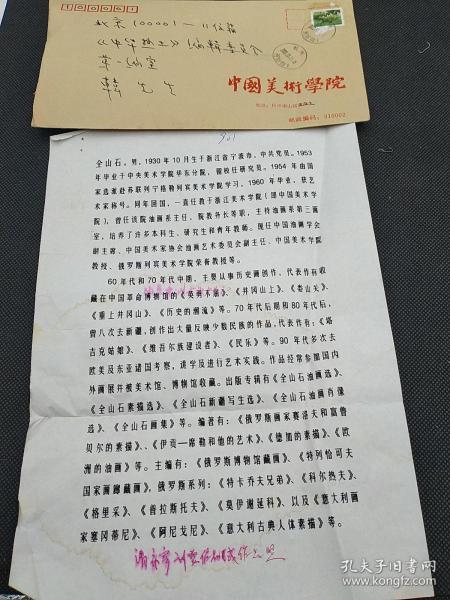 北京100001—11信箱
《中华热土》编辑委员会
第一编室
韩先生
中國美術學院
邮政编码：310002
全山石。男，1930年10月生于浙江省宁波市，中共党员。1953
年毕业于中央美术学院华东分院，留校任研究员。1954年由国
家选派赴苏联列宁格勒列宾美术学院学习，1960年毕业，获艺
术家称号。同年回国，一直任教于浙江美术学院（即中国美术学
院），曾任该院油画系主任、院教务长等职，主持油画系第三画
室，培养了许多本科生、研究生和青年教师。现任中国油画学会
副主席、中国美术家协会油画艺术委员会副主任、中国美术学院
教授、俄罗斯列宾美术学院荣誉教授等。
60年代和70年代中期，主要从事历史画创作，代表作有收
藏在中国革命博物馆的《英勇不屈》、《井冈山上》、《娄山关》、
《重上井冈山》、《历史的潮流》等。70年代后期和80年代后，
曾八次去新疆，创作出大量反映少数民族的作品，代表作有：《塔
吉克姑娘》、《维吾尔族建设者》、《民乐》等。90年代多次去
欧美及东亚诸国考察，讲学及进行艺术实践。作品经常参加国内
外画展并被美术馆、博物馆收藏。出版专辑有《全山石油画选》、
《全山石素描选》、《全山石新疆写生选》、《全山石油画肖像
选》、《全山石画集》等。编著有：《俄罗斯画家赛洛夫和富鲁
贝尔的素描》、《伊贡—席勒和他的艺术》、《德加的素描》、《欧
洲的油画》等。主编有：《俄罗斯博物馆藏画》、《特列恰可夫
国家画廊藏画》，俄罗斯系列：《特卡乔夫兄弟》、《科尔热夫》、
《格里采》、《普拉斯托夫》、《莫伊谢延科》、以及《意大利画
家塞冈蒂尼》、《阿尼戈尼》、《意大利古典人体素描》等。
孔夫子旧书网